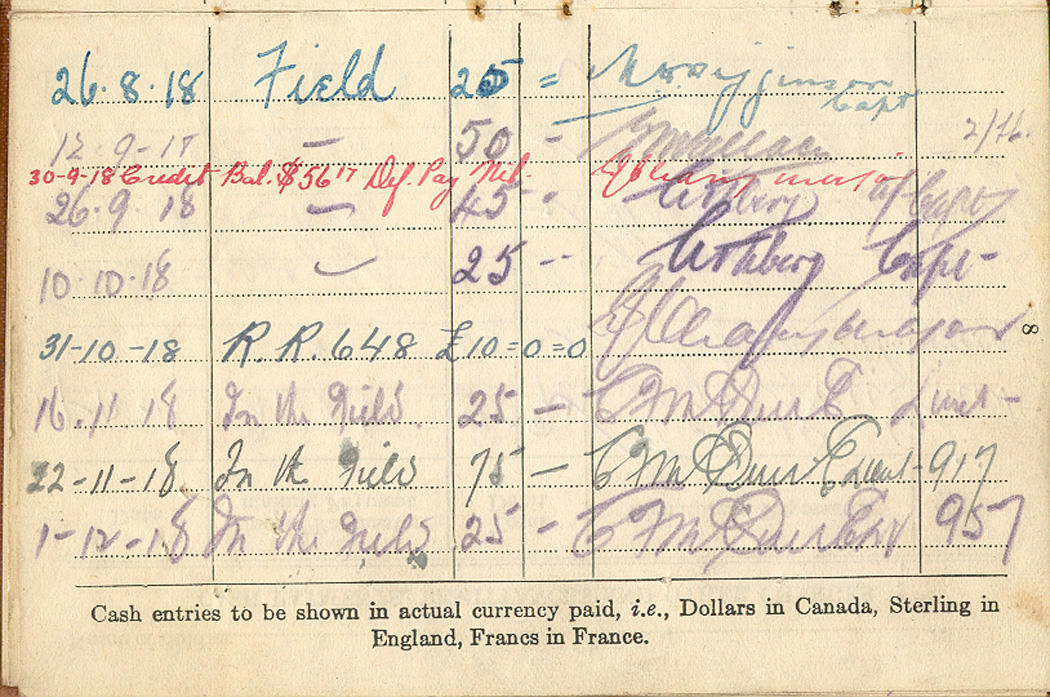 26.8.18 Field 25 = Capt
12-9-17 — 50 - 2/76.
30-9-18 Credit Bal. $56 17 Def. Pay Nil. Major
26.9.18 — 45 - Capt
10.10.18 — 25 -- Capt-
31-10-18 R.R.648 £10=0=0 Major
16.11.18 In the Field. 25 — Lieut-
22-11-18 In the Field 75 — Lieut- 917
1-12-18 In the Field 25 - 957
8
Cash entries to be shown in actual currency paid, i.e., Dollars in Canada, Sterling in
England, Francs in France.